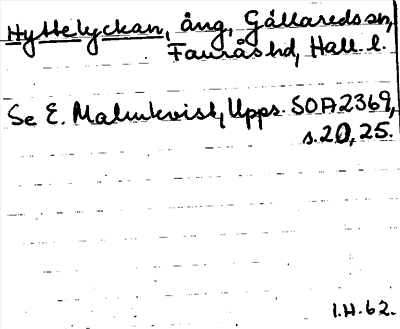 Hyttelyckan, äng, Gällareds sn,
Faurås hd, Hall. l.
Se E. Malmkvist, Upps. SOA2369,
s.20, 25.
I.H.62.